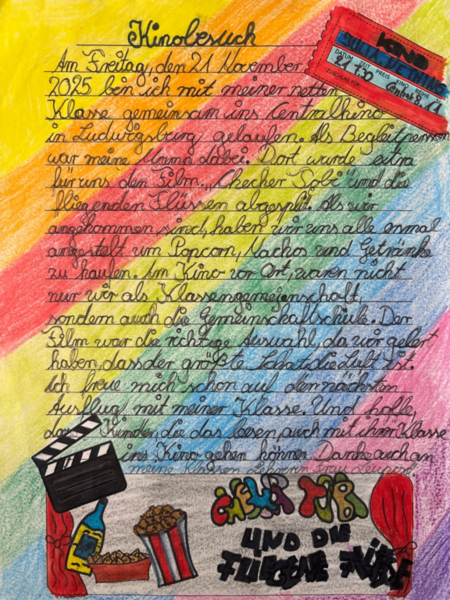 Kinobesuch
Am Freitag, den 21 November
2025 bin ich mit meiner netten
Klasse gemeinsam ins Centralkino
in Ludwigsburg gelaufen. Als Begleitperson
war meine Mama dabei. Dort wurde extra
für uns den Film „Checker Tobi" und die
fliegenden Flüssen abgespielt. Als wir
angekommen sind, haben wir uns alle enmal
angestelt um Popcorn, Nachos und Getränke
zu kaufen. Am Kino vor Ort, waren nicht
nur wir als Klassengemeinschaft,
sondern auch die Gemeinschaftschule. Der
Film war die richtige Auswahl, da wir gelernt
haben, dass der größte Schatz die Luft ist.
Ich freue mich schon auf den nächsten
Ausflug mit meiner Klasse. Und hoffe,
das Kinder, die das lesen, auch mit ihrer Klasse
ins Kino gehen können. Danke auch an
meine Klassen Lehrerin Frau
KINO
DATUM ZEIT PREIS REIHE
CHEKER TOBI
UND DIE
FLIEGENE FLÜSSE